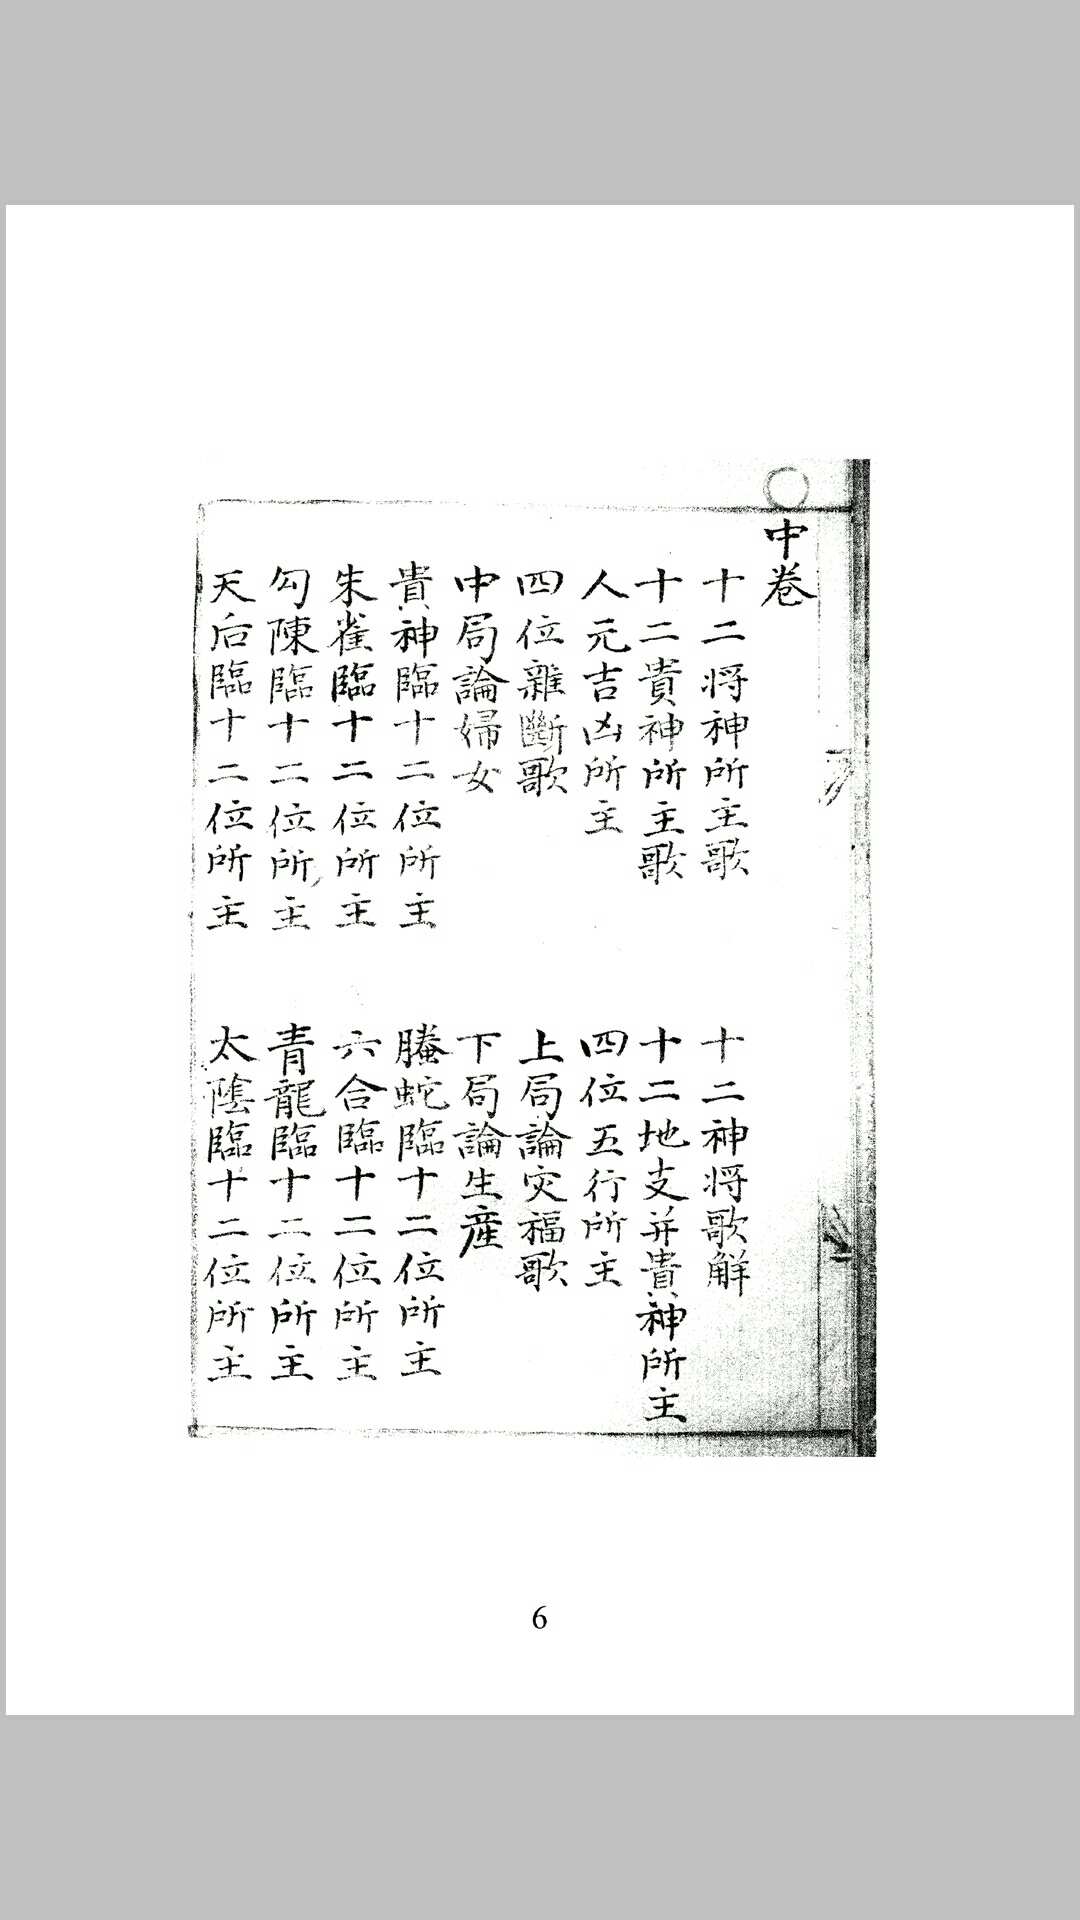 中卷
十二將神所主歌 十二神將歌解
十二貴神所主歌 十二地支並貴神所主
人元吉凶所主 四位五行所主
四位雜斷歌 上局論灾福歌
中局論婦女 下局論生産
貴神臨十二位所主 螣蛇臨十二位所主
朱雀臨十二位所主 六合臨十二位所主
勾陳臨十二位所主 青龍臨十二位所主
天后臨十二位所主 太陰臨十二位所主
6